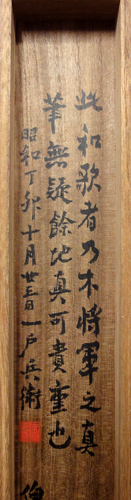 此和歌者乃木将軍之真
筆無疑餘地真可貴重也
昭和丁卯十月廿三日一戸兵衛